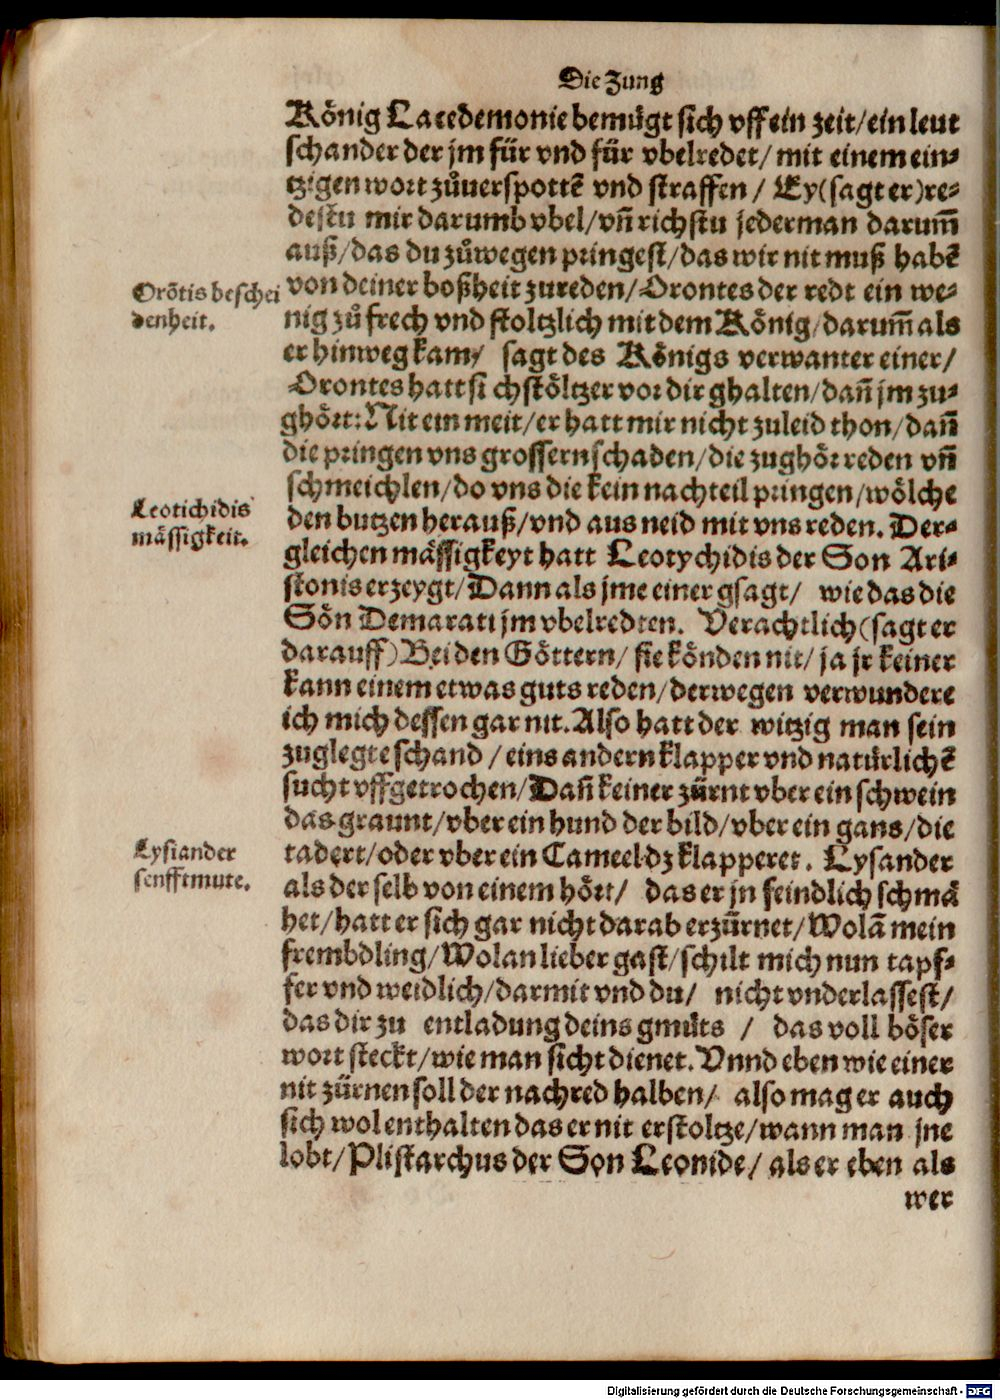 Die Zung
König Lacedemonie bemügt sich vff ein zeit/ein leut
schander der jm für vnd für vbelredet/ mit einem ein-
tzigen wort zůuerspottē vnd straffen / Ey(sagt er)re-
destu mir darumb vbel/vn̄ richstu jederman darum̄
auß/das du zůwegen pringest/das wir nit muß habē
Orōtis beschei
denheit.
von deiner boßheit zureden/Orontes der redt ein we-
nig zů frech vnd stoltzlich mit dem König/darum̄ als
er hinweg kam/ sagt des Königs verwanter einer/
Orontes hatt si ch stöltzer vor dir ghalten/dan̄ jm zu-
ghört: Nit ein meit/er hatt mir nicht zuleid thon/dan̄
die pringen vns grossern schaden/die zughör reden vn̄
schmeichlen/do vns die kein nachteil pringen/wölche
Leotichidis
mässigkeit.
den butzen herauß/vnd aus neid mit vns reden. Der-
gleichen mässigkeyt hatt Leotychidis der Son Ari-
stonis erzeygt/Dann als jme einer gsagt/ wie das die
Sön Demarati jm vbelredten. Verachtlich(sagt er
darauff)Bei den Göttern/ sie könden nit/ ja jr keiner
kann einem etwas guts reden/derwegen verwundere
ich mich dessen gar nit. Also hatt der witzig man sein
zuglegte schand / eins andern klapper vnd natürlichē
sucht vffgetrochen/Dan̄ keiner zürnt vber ein schwein
das graunt/vber ein hund der bild/vber ein gans/die
Lysiander
senfftmute.
tadert/oder vber ein Cameel dz klapperet. Lysander
als der selb von einem hört/ das er jn feindlich schmä
het/hatt er sich gar nicht darab erzürnet/Wolā mein
frembdling/Wolan lieber gast/schilt mich nun tapf-
fer vnd weidlich/darmit vnd du/ nicht vnderlassest/
das dir zu entladung deins gmüts / das voll böser
wort steckt/wie man sicht dienet. Vnnd eben wie einer
nit zürnen soll der nachred halben/ also mag er auch
sich wol enthalten das er nit erstoltze/wann man jne
lobt/Plistarchus der Son Leonide/ als er eben als
wer
Digitalisierung gefördert durch die Deutsche Forschungsgemeinschaft - DFG